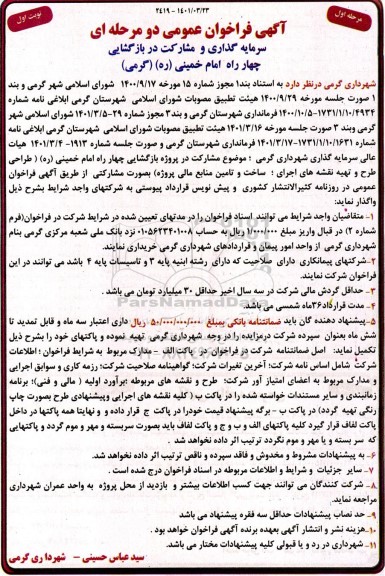 مرحله اول
نوبت اول
۱۴۰۱/۰۳/۲۳ - ۲۴۱۹
آگهی فراخوان عمومی دو مرحله ای
سرمایه گذاری و مشارکت در بازگشایی
چهار راه امام خمینی (ره) (گرمی)
شهرداری گرمی درنظر دارد به استناد بند۱ مجوز شماره ۱۵ مورخه ۱۴۰۰/۹/۱۷ شورای اسلامی شهر گرمی و بند
۱ صورت جلسه مورخه ۱۴۰۰/۹/۲۹ هیئت تطبیق مصوبات شورای اسلامی شهرستان گرمی ابلاغی نامه شماره
۱۴۰۰/۱۰/۵-۱۷۳۱/۱/۱۰/۴۹۳۴ فرمانداری شهرستان گرمی و بند۳ مجوز شماره ۲۹-۱۴۰۱/۳/۵ شورای اسلامی شهر
گرمی وبند ۳ صورت جلسه مورخه ۱۴۰۱/۳/۱۶ هیئت تطبیق مصوبات شورای اسلامی شهرستان گرمی ابلاغی نامه
شماره ۱۴۰۱/۳/۱۷-۱۷۳۱/۱/۱۰/۱۶۳۱ فرمانداری شهرستان گرمی و صورت جلسه شماره ۱۹۱۳- ۱۴۰۱/۳/۴ هیات
عالی سرمایه گذاری شهرداری گرمی ؛ موضوع مشارکت در پروژه بازگشایی چهار راه امام خمینی (ره) ( طراحی
طرح و تهیه نقشه های اجرا ؛ ساخت و تامین منابع مالی پروژه) بصورت مشارکتی از طریق آگهی فراخوان
عمومی در روزنامه کثیرالانتشار کشوری و پیش نویس قرارداد پیوستی به شرکتهای واجد شرایط بشرح ذیل
واگذار نماید:
۱- متقاضیان واجد شرایط می توانند اسناد فراخوان را در مدتهای تعیین شده در شرایط شرکت در فراخوان(فرم
شماره ۲) در قبال واریز مبلغ ۱/۰۰۰/۰۰۰ ریال به حساب ۰۱۰۵۶۲۳۴۰۱۰۰۸ نزد بانک ملی شعبه مرکزی گرمی بنام
شهرداری گرمی از واحد امور پیمان و قراردادهای شهرداری گرمی خریداری نمایند.
۲-شرکتهای پیمانکاری دارای صلاحیت که دارای رشته ابنیه پایه ۳ و تاسیسات پایه ۴ باشد می توانند در این
فراخوان شرکت نمایند.
۳- حداقل گردش مالی شرکت در سه سال اخیر حداقل ۳۰ میلیارد تومان می باشد .
۴- مدت قرارداد۳۶ماه شمسی می باشد.
۵-پیشنهاد دهنده گان باید ضمانتنامه بانکی بمبلغ ۵۰/۰۰۰/۰۰۰/۰۰۰ ریال داری اعتبار سه ماه و قابل تمدید تا
شش ماه بعنوان سپرده شرکت درمزایده را در وجه شهرداری گرمی تهیه نموده و پاکتهای خود را بشرح ذیل
تکمیل نماید: اصل ضمانتنامه شرکت در فراخوان در پاکت الف - مدارک مربوط به شرایط فراخوان ؛ اطلاعات
شرکت شامل اساس نامه شرکت؛ آخرین تغیرات شرکت؛ گواهینامه صلاحیت شرکت؛ رزمه کاری و سوابق اجرایی
و مدارک مربوط به اعضای امتیاز آور شرکت؛ طرح و نقشه های مربوطه ؛برآورد اولیه ( مالی و فنی)؛ برنامه
زمانبندی و سایر مستندات خواسته شده را در پاکت ب ( کلیه نقشه های اجرایی وپیشنهادی طرح بصورت چاپ
رنگی تهیه گردد) در پاکت ب - برگه پیشنهاد قیمت خودرا در پاکت ج قرار داده و و نهایتا همه پاکتها در داخل
پاکت لفاف قرار گیرد کلیه پاکتهای الف و ب و ج و پاکت لفاف باید بصورت سربسته و مهر و موم گردد و پاکتهایی
که سر بسته و یا مهر و موم نگردد ترتیب اثر داده نخواهد شد .
۶- به پیشنهادات مشروط و مخدوش و فاقد سپرده و ناقص ترتیب اثر داده نخواهد شد.
۷- سایر جزئیات و شرایط و اطلاعات مربوطه در اسناد فراخوان درج شده است .
۸- شرکت کنندگان می توانند جهت کسب اطلاعات بیشتر و بازدید از محل پروژه به واحد عمران شهرداری
مراجعه نماید.
۹- حد نصاب پیشنهادات حداقل سه فقره پیشنهاد می باشد.
۱۰-هزینه نشر و انتشار آگهی بعهده برنده آگهی فراخوان خواهد بود .
۱۱-شهرداری در رد و یا قبولی کلیه پیشنهادات مختار می باشد.
سید عباس حسینی - شهرداری گرمی
ParsNamadData